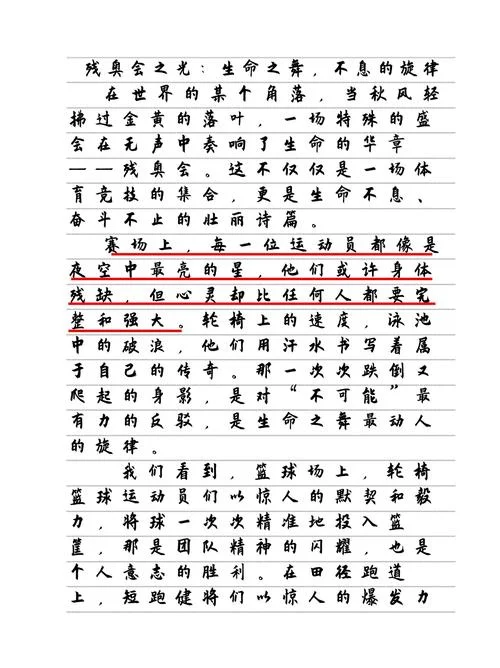 残奥会之光：生命之舞，不息的旋律
在世界的某个角落，当秋风轻
拂过金黄的落叶，一场特殊的盛
会在无声中奏响了生命的华章
——残奥会。这不仅仅是一场体
育竞技的集合，更是生命不息、
奋斗不止的壮丽诗篇。
赛场上，每一位运动员都像是
夜空中最亮的星，他们或许身体
残缺，但心灵却比任何人都要完
整和强大。轮椅上的速度，泳池
中的破浪，他们用汗水书写着属
于自己的传奇。那一次次跌倒又
爬起的身影，是对“不可能”最
有力的反驳，是生命之舞最动人
的旋律。
我们看到，篮球场上，轮椅
篮球运动员们以惊人的默契和毅
力，将球一次次精准地投入篮
筐，那是团队精神的闪耀，也是
个人意志的胜利。在田径跑道
上，短跑健将们以惊人的爆发力